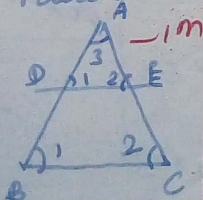 A
-1m
3
D 1 2 E
1 2
B C